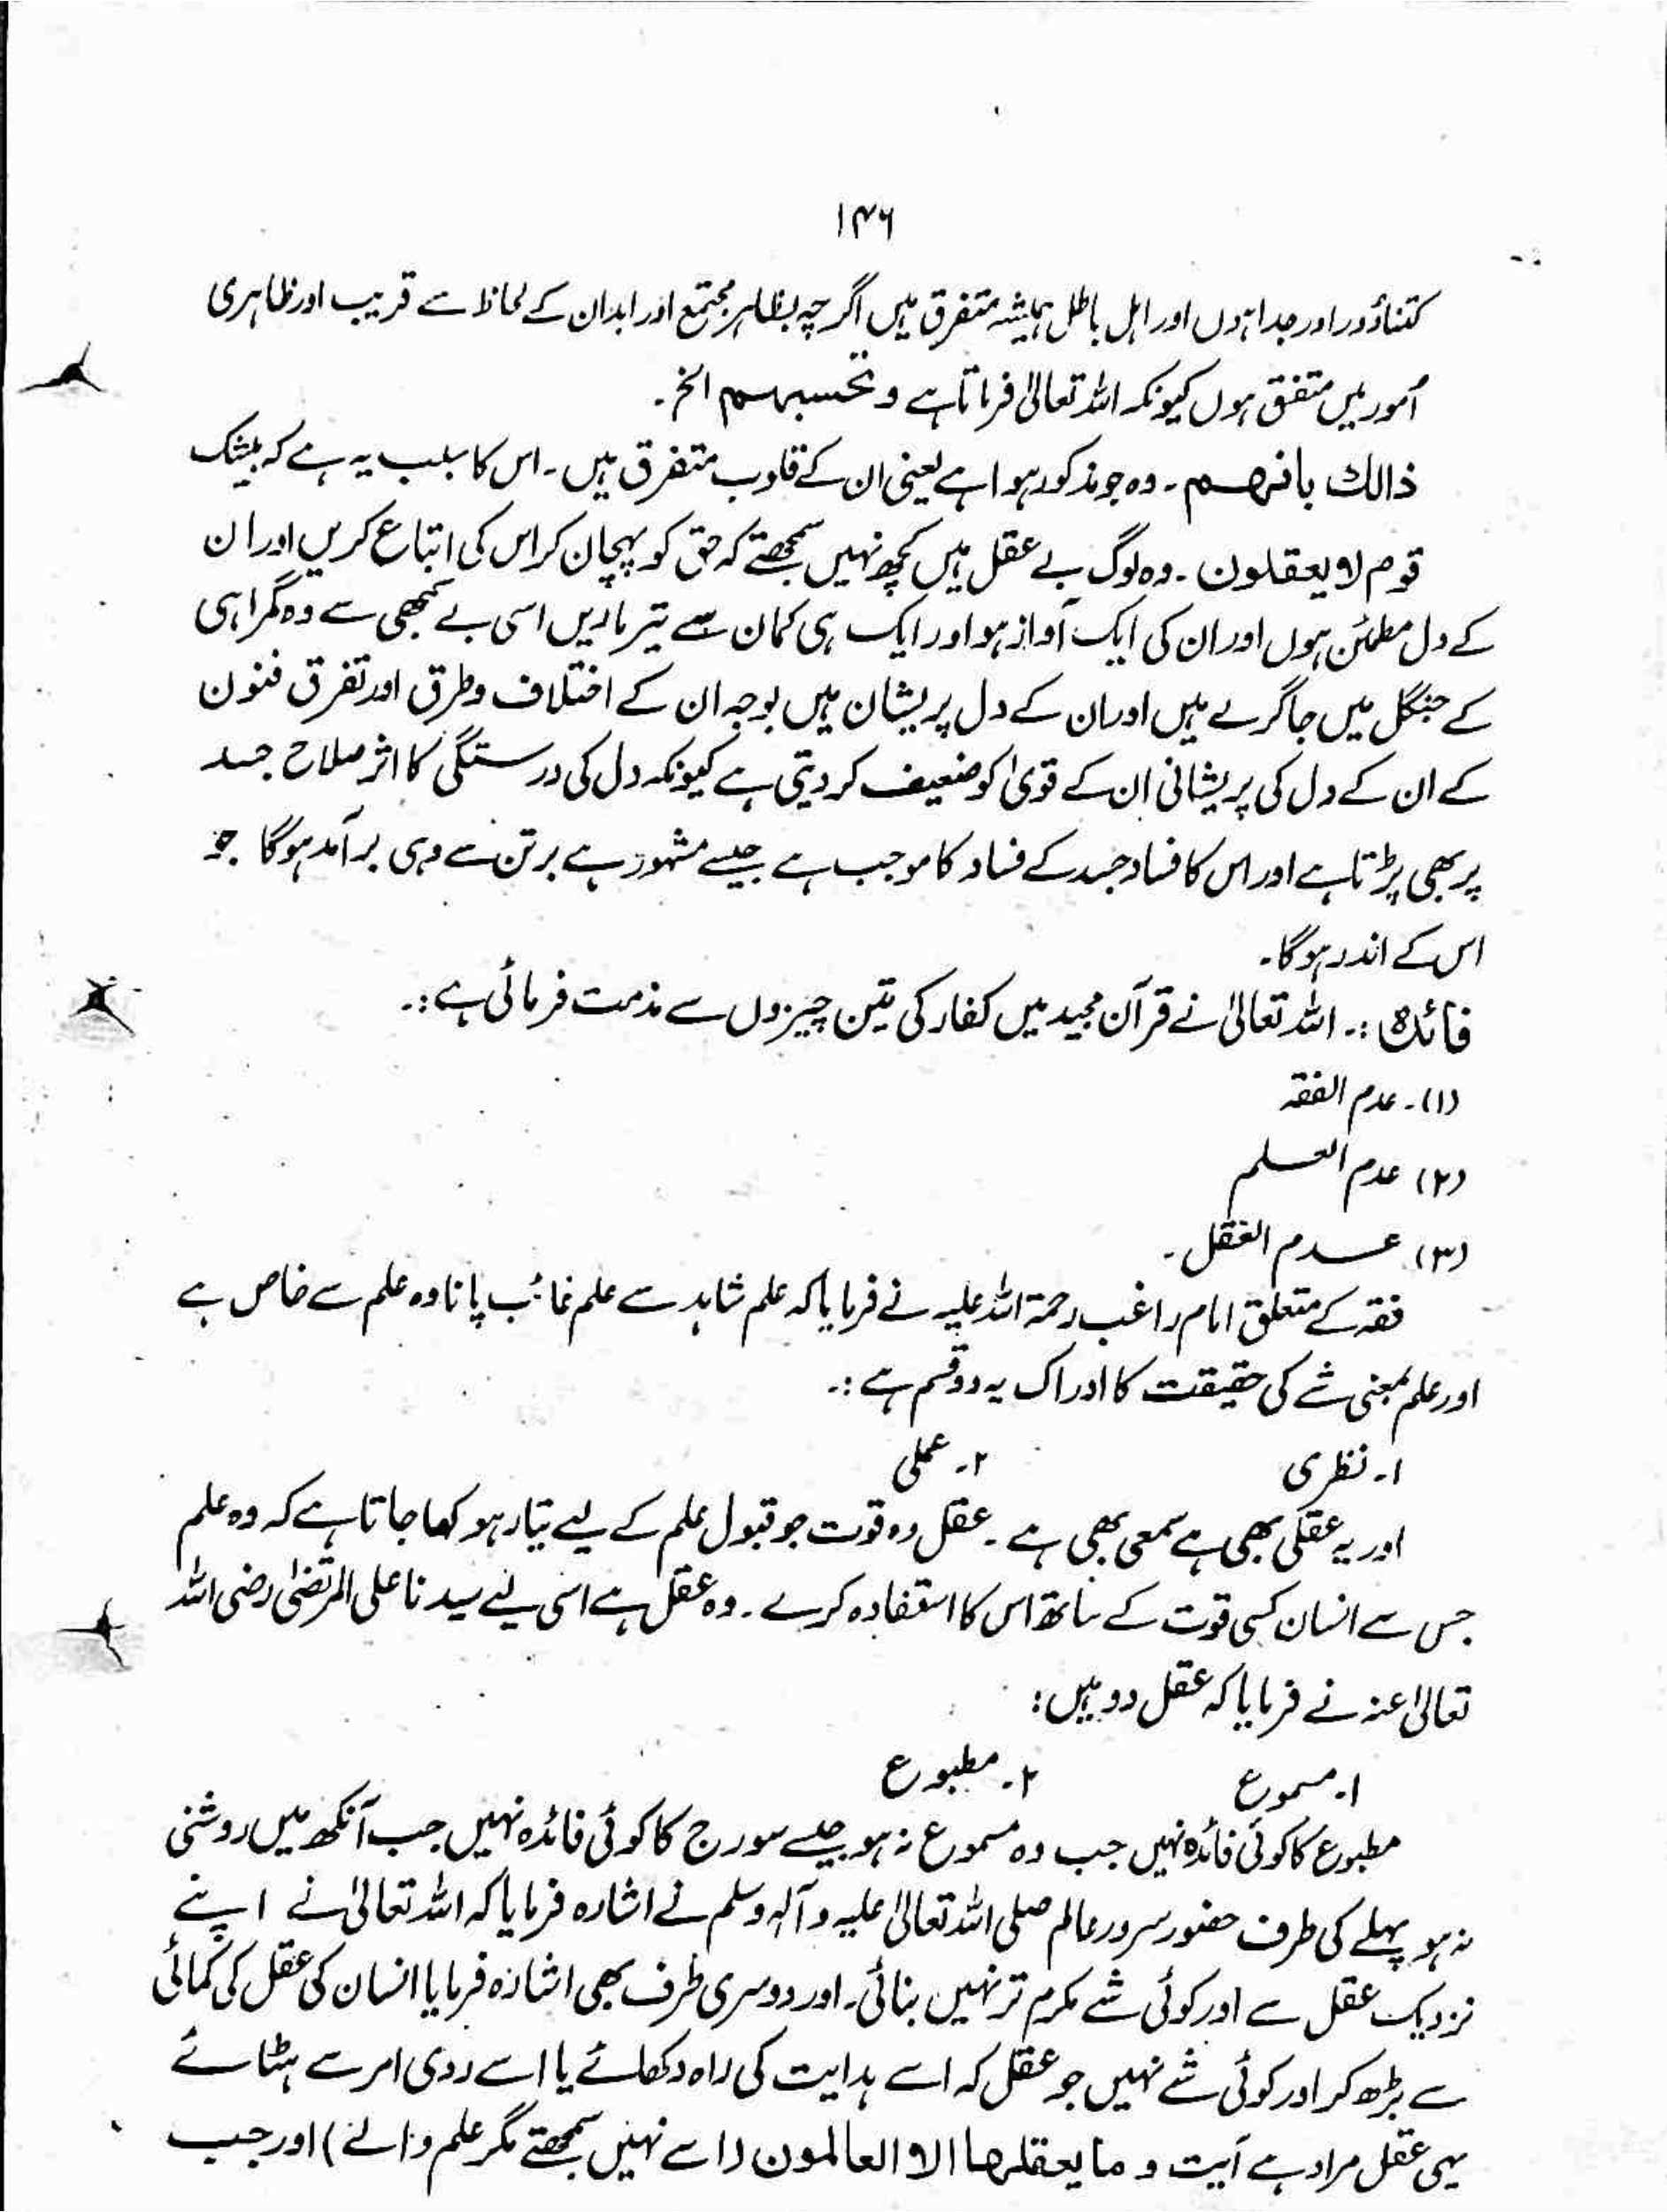 ۱۴۶
کتنا دور اور جدا ہوں اور اہل باطل ہمیشہ متفرق ہیں اگرچہ بظاہر مجتمع اور ابدان کے لحاظ سے قریب اور ظاہری
اُمور میں متفق ہوں کیونکہ اللہ تعالیٰ فرماتا ہے و تحسبہم الخ۔
ذالك بانہم۔ وہ جو مذکور ہوا ہے یعنی ان کے قلوب متفرق ہیں۔ اس کا سبب یہ ہے کہ بیشک
قوم لا یعقلون۔ وہ لوگ بے عقل ہیں کچھ نہیں سمجھتے کہ حق کو پہچان کر اس کی اتباع کریں اور ان
کے دل مطمئن ہوں اور ان کی ایک آواز ہو اور ایک ہی کمان سے تیر ماریں اسی بے سمجھی سے وہ گمراہی
کے جنگل میں جا گرے ہیں اور ان کے دل پریشان ہیں بوجہ ان کے اختلاف و طرق اور تفرق فنون
کے ان کے دل کی پریشانی ان کے قویٰ کو ضعیف کر دیتی ہے کیونکہ دل کی درستگی کا اثر صلاح جسد
پر بھی پڑتا ہے اور اس کا فساد جسد کے فساد کا موجب ہے جیسے مشہور ہے برتن سے وہی برآمد ہوگا جو
اس کے اندر ہوگا۔
فائدہ :۔ اللہ تعالیٰ نے قرآن مجید میں کفار کی تین چیزوں سے مذمت فرمائی ہے :۔
(۱)۔ عدم الفقہ
(۲) عدم العلم
(۳) عدم العقل۔
فقہ کے متعلق امام راغب رحمۃ اللہ علیہ نے فرمایا کہ علم شاہد سے علم غائب پانا وہ علم سے خاص ہے
اور علم بمعنی شے کی حقیقت کا ادراک یہ دو قسم ہے :۔
۱۔ نظری ۲۔ عملی
اور یہ عقلی بھی ہے سمعی بھی ہے۔ عقل وہ قوت جو قبول علم کے لیے تیار ہو کہا جاتا ہے کہ وہ علم
جس سے انسان کسی قوت کے ساتھ اس کا استفادہ کرے۔ وہ عقل ہے اسی لیے سیدنا علی المرتضیٰ رضی اللہ
تعالیٰ عنہ نے فرمایا کہ عقل دو ہیں :
۱۔ مسموع ۲۔ مطبوع
مطبوع کا کوئی فائدہ نہیں جب وہ مسموع نہ ہو جیسے سورج کا کوئی فائدہ نہیں جب آنکھ میں روشنی
نہ ہو پہلے کی طرف حضور سرور عالم صلی اللہ تعالیٰ علیہ وآلہ وسلم نے اشارہ فرمایا کہ اللہ تعالیٰ نے اپنے
نزدیک عقل سے اور کوئی شے مکرم تر نہیں بنائی۔ اور دوسری طرف بھی اشارہ فرمایا انسان کی عقل کی کمائی
سے بڑھ کر اور کوئی شے نہیں جو عقل کہ اسے ہدایت کی راہ دکھائے یا اسے ردی امر سے ہٹائے
یہی عقل مراد ہے آیت و ما یعقلہا الا العالمون (اسے نہیں سمجھتے مگر علم والے) اور جب